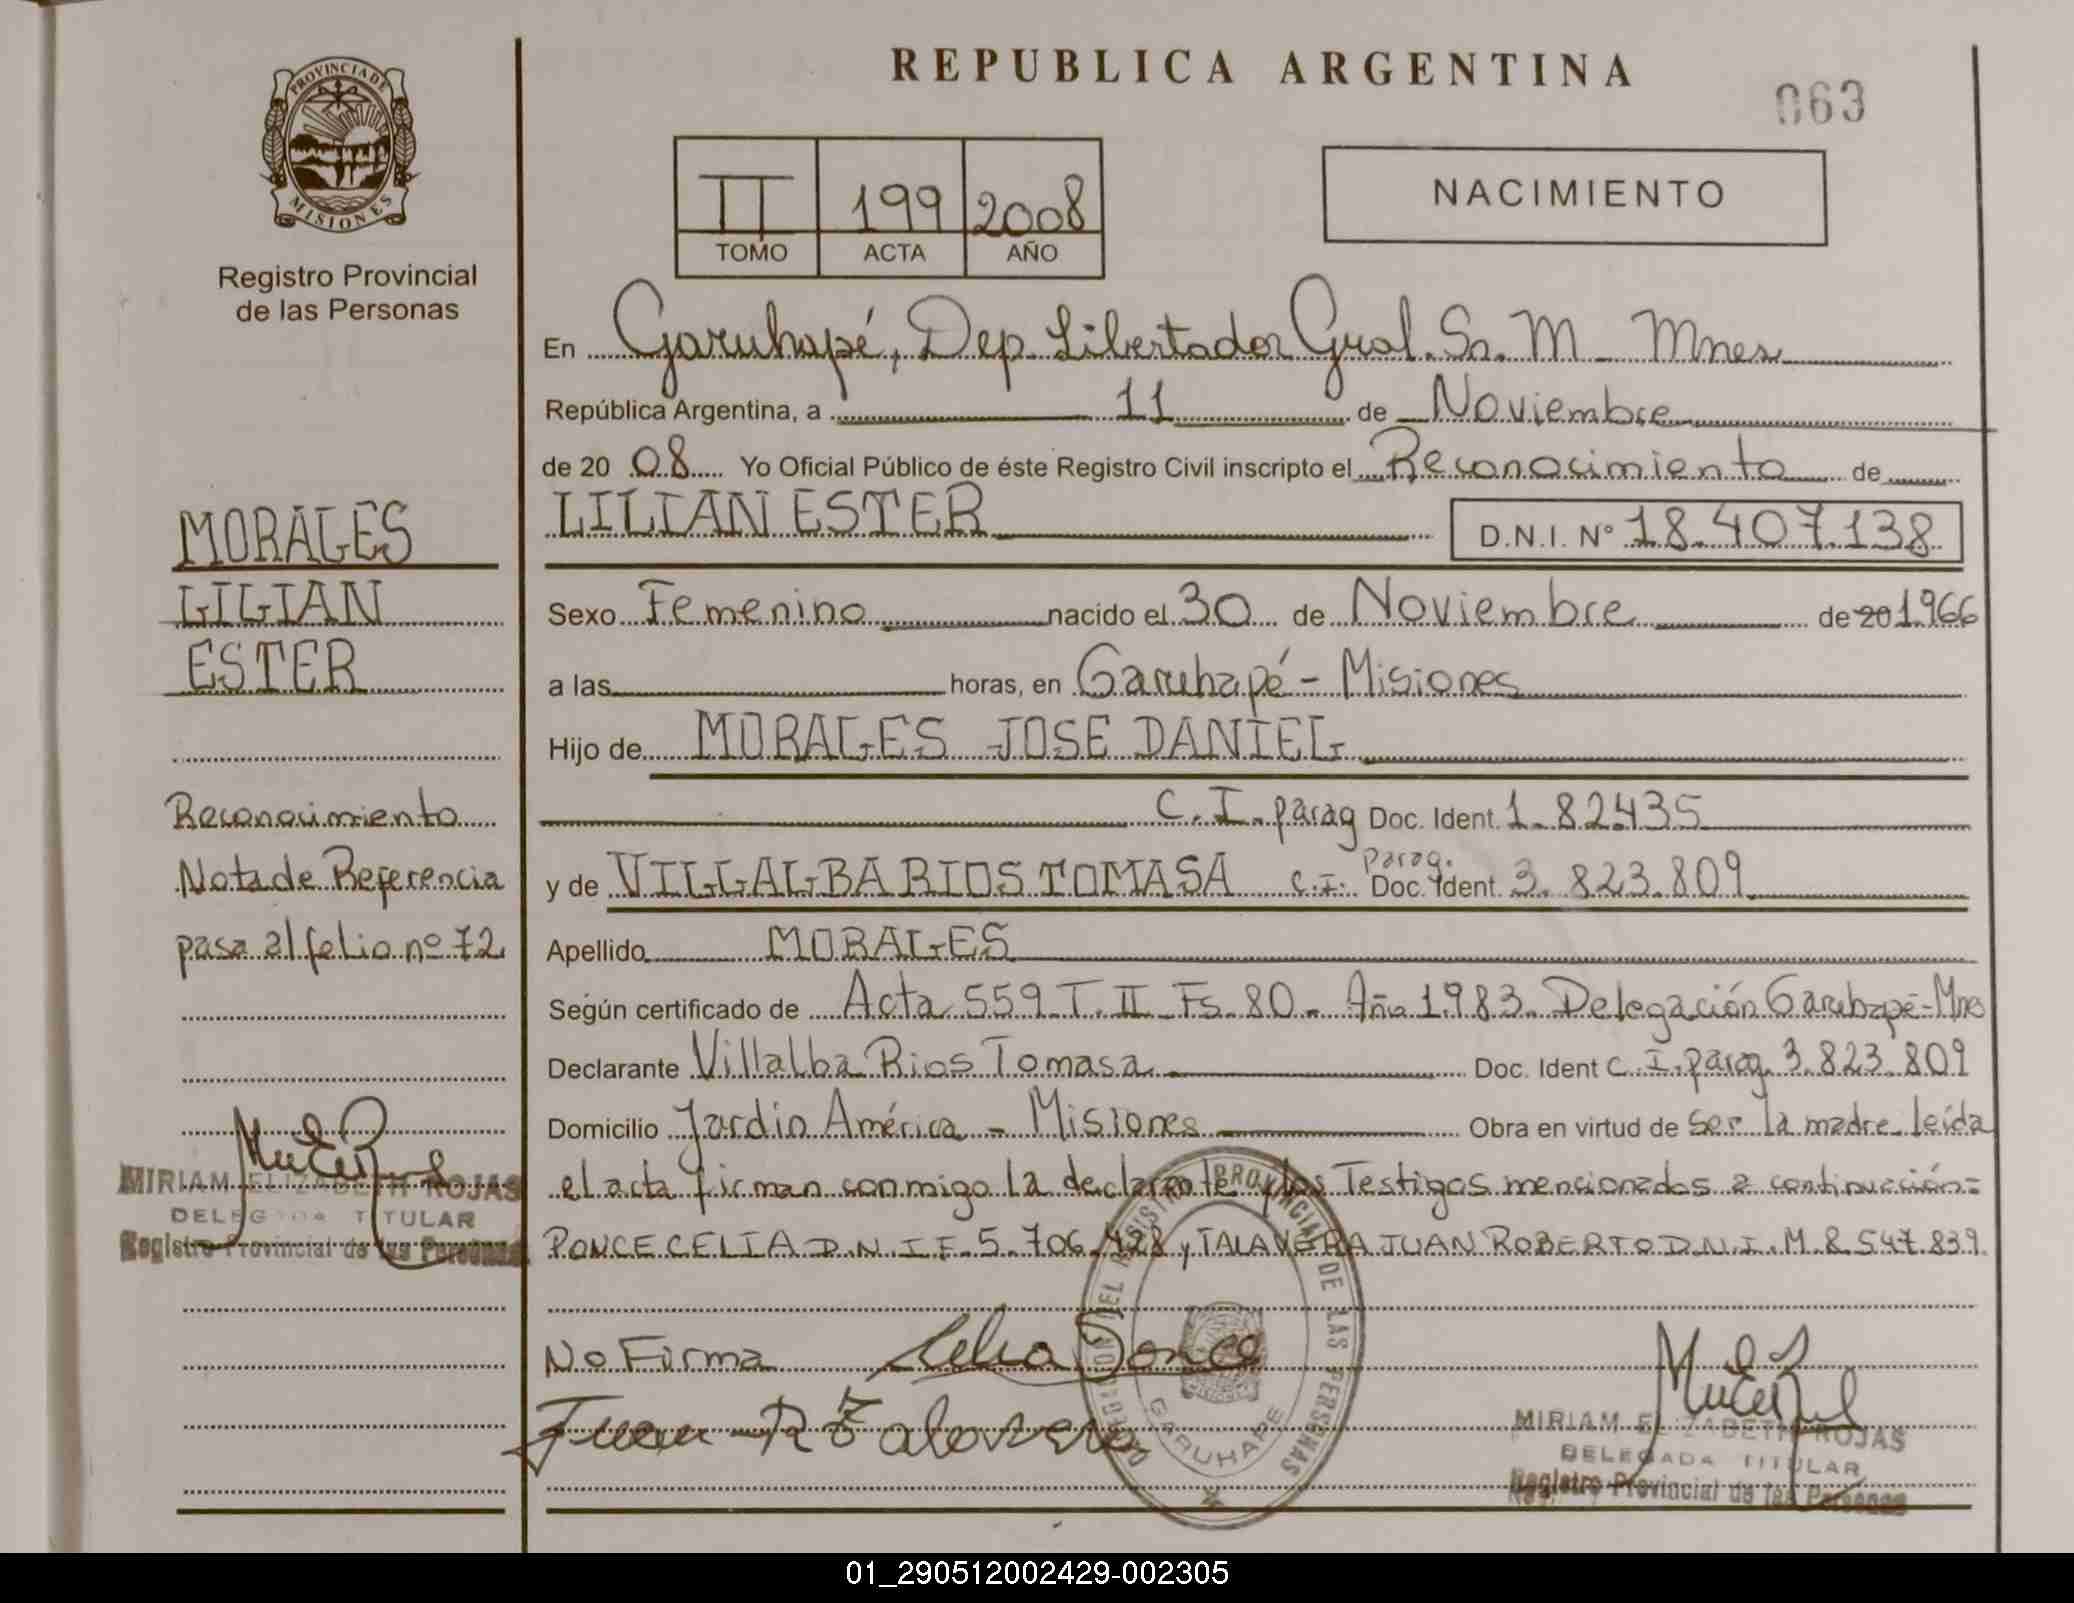 REPUBLICA ARGENTINA
063
PROVINCIA DE
MISIONES
Registro Provincial
de las Personas
II 199 2008
TOMO ACTA AÑO
NACIMIENTO
En Garuhapé, Dep. Libertador Gral. Sn. M - Mnes
República Argentina, a 11 de Noviembre
de 20 08 Yo Oficial Público de éste Registro Civil inscripto el Reconocimiento de
LILIAN ESTER D.N.I. Nº 18.407.138
Sexo Femenino nacido el 30 de Noviembre de 20 1966
a las horas, en Garuhapé - Misiones
Hijo de MORALES JOSE DANIEL
C.I. parag Doc. Ident. 1.82435
y de VILLALBA RIOS TOMASA C.I. parag. Doc. Ident. 3.823.809
Apellido MORALES
Según certificado de Acta 559 T. II Fs. 80. Año 1983. Delegación Garuhapé - Mnes
Declarante Villalba Rios Tomasa Doc. Ident C.I. parag. 3.823.809
Domicilio Jardin América - Misiones Obra en virtud de ser la madre leída
el acta firman conmigo la declarante y los Testigos mencionados a continuación:
PONCE CELIA D.N.I F. 5.706.428 y TALAVERA JUAN ROBERTO D.N.I. M. 8.547.839.
No Firma Celia Ponce
Juan R Talavera
MIRIAM ELIZABETH ROJAS
DELEGADA TITULAR
Registro Provincial de las Personas
PROVINCIAL DE LAS PERSONAS
GARUHAPE
MORALES
LILIAN
ESTER
Reconocimiento
Nota de Referencia
pasa al folio nº 72
MIRIAM ELIZABETH ROJAS
DELEGADA TITULAR
Registro Provincial de las Personas
01_290512002429-002305